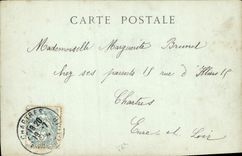 CARTE POSTALE
Mademoiselle Marguerite Brunel
chez ses parents 15 rue d'Illiers 15
Chartres
Eure et Loir
CHARTRES